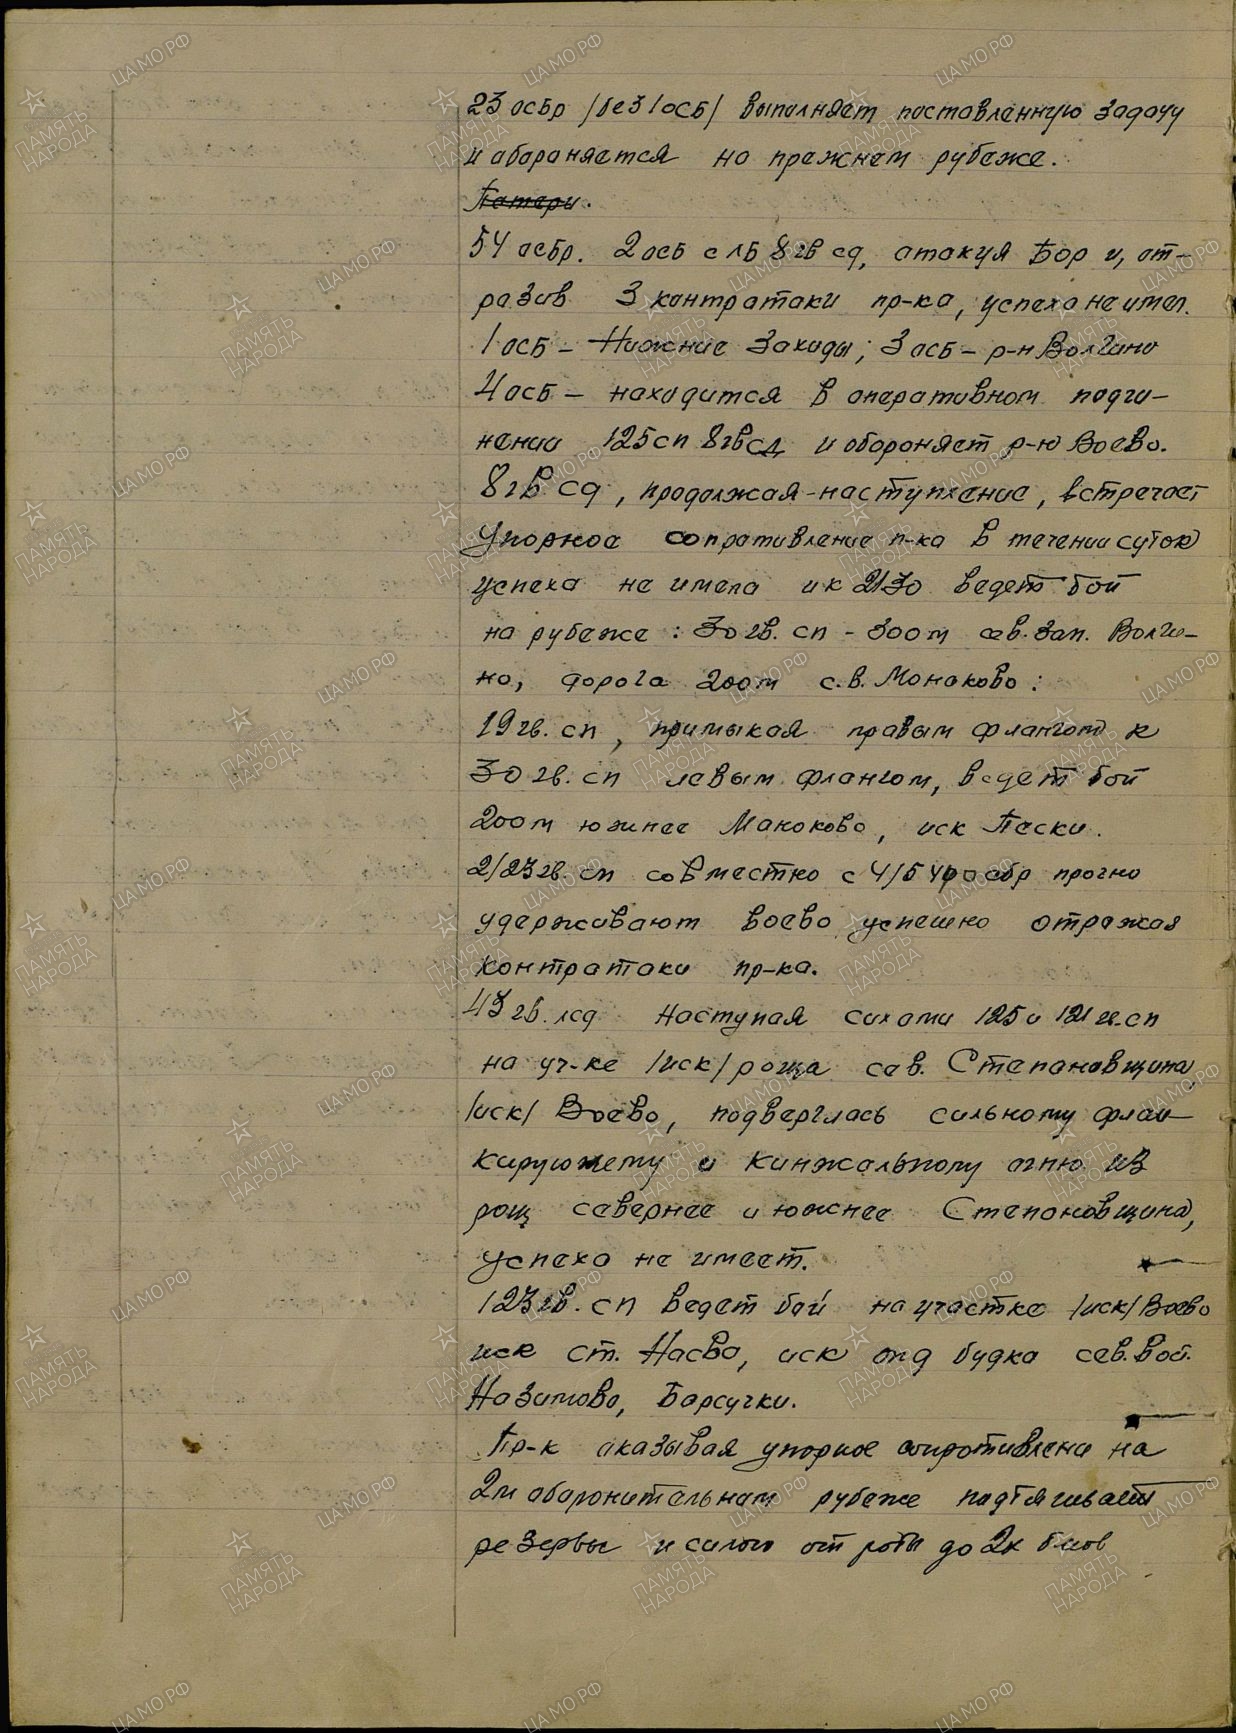 23 осбр /без 1 осб/ выполняет поставленную задачу
и обороняется на прежнем рубеже.
Потери.
54 осбр. 2 осб с ЛБ 8 гв сд, атакуя Бор и, от-
разив 3 контратаки пр-ка, успеха не имел.
1 осб – Нижние Заходы; 3 осб – р-н Волгино
4 осб – находится в оперативном подчи-
нении 125 сп 8 гв сд и обороняет р-н Воево.
8 гв сд, продолжая наступление, встречает
упорное сопративление п-ка в течении суток
успеха не имела и к 2130 ведет бой
на рубеже: 30 гв. сп - 300 м сев. зап. Волги-
но, дорога 200 м с.в. Монаково:
19 гв. сп, примыкая правым флангом к
30 гв. сп левым флангом, ведет бой
200 м южнее Манаково, иск Пески.
2/23 гв. сп совместно с 4/54 осбр прочно
удерживают Воево успешно отражая
контратаки пр-ка.
43 гв. лсд наступая силами 125 и 121 гв. сп
на уч-ке /иск/ роща сев. Степановщина
/иск/ Воево, подверглась сильному флан
кирующему и кинжальному огню из
рощ севернее и южнее Степановщина,
успеха не имеет.
123 гв. сп ведет бой на участке /иск/ Воево
иск ст. Насва, иск отд будка сев. вос.
Назимово, Барсучки.
Пр-к оказывая упорное сопротивлени на
2м оборонительном рубеже подтягивает
резервы и силою от роты до 2х б-нов
ЦАМО РФ
ПАМЯТЬ НАРОДА